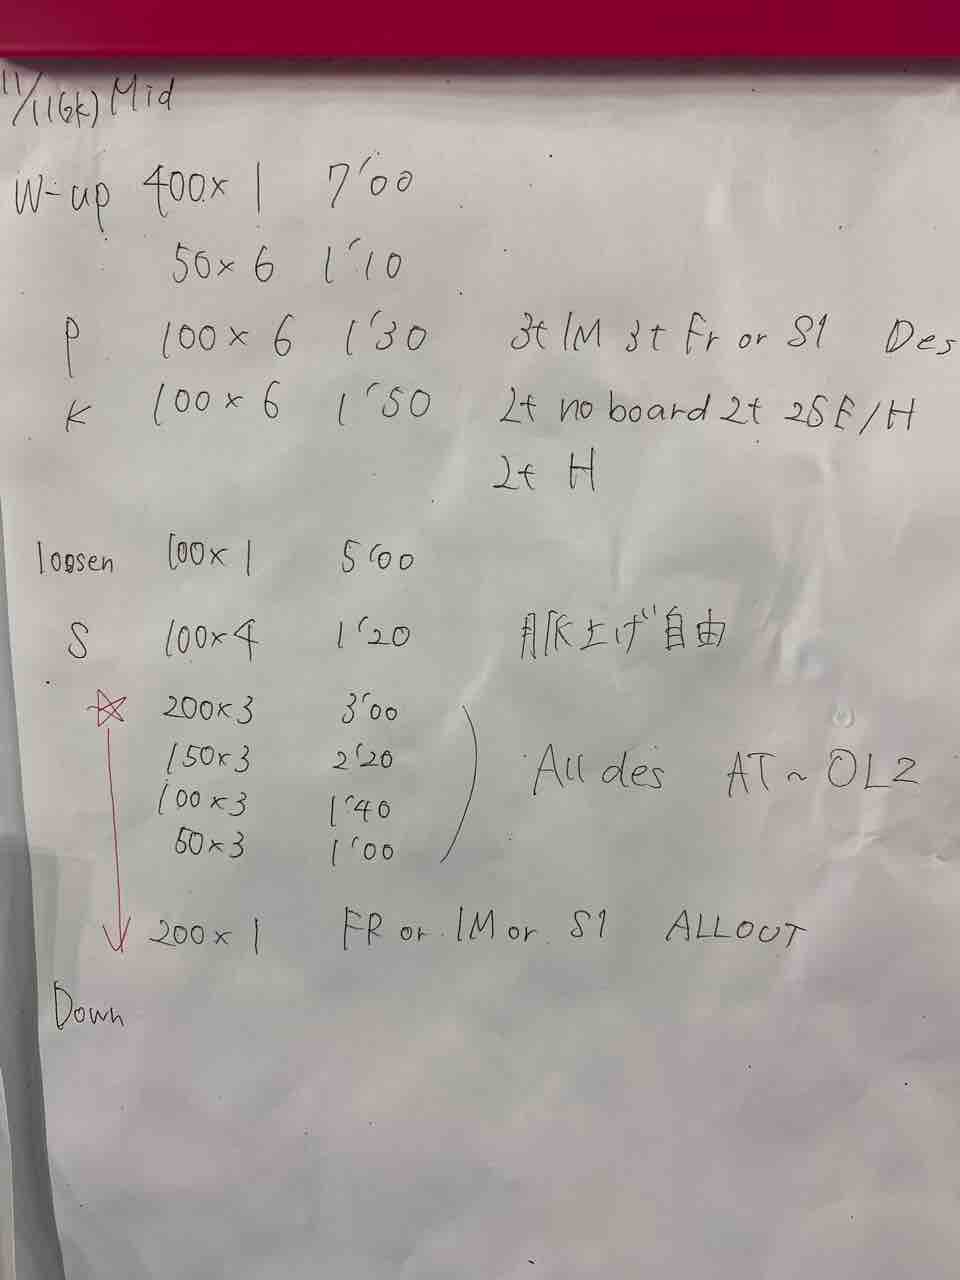 11/11(6k) Mid
W-up 400×1 7'00
50×6 1'10
P 100×6 1'30 3t IM 3t Fr or S1 Des
K 100×6 1'50 2t no board 2t 25E/H
2t H
loosen 100×1 5'00
S 100×4 1'20 脈上げ自由
☆ 200×3 3'00
150×3 2'20
100×3 1'40
50×3 1'00
All des AT~OL2
200×1 FR or IM or S1 ALLOUT
Down